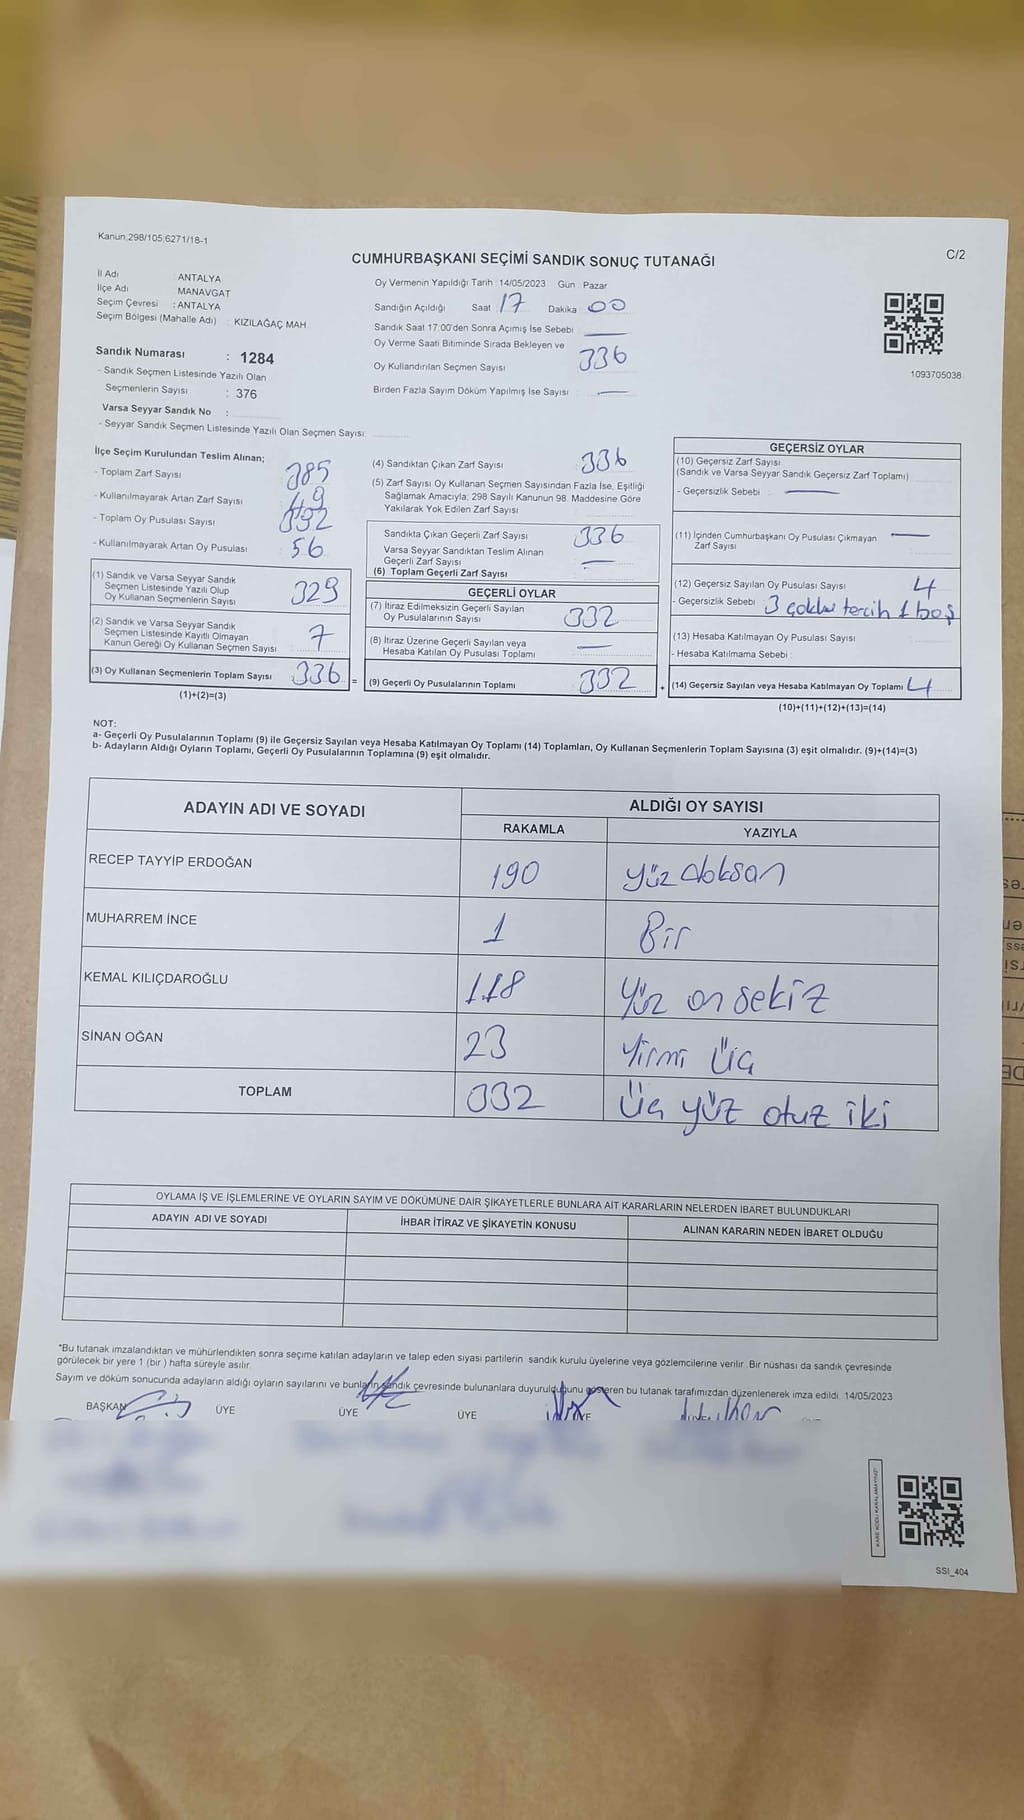 Kanun:298/105;6271/18-1
C/2
CUMHURBAŞKANI SEÇİMİ SANDIK SONUÇ TUTANAĞI
İl Adı ANTALYA
İlçe Adı MANAVGAT
Seçim Çevresi : ANTALYA
Seçim Bölgesi (Mahalle Adı) : KIZILAĞAÇ MAH.
Sandık Numarası : 1284
- Sandık Seçmen Listesinde Yazılı Olan
Seçmenlerin Sayısı : 376
Varsa Seyyar Sandık No :
- Seyyar Sandık Seçmen Listesinde Yazılı Olan Seçmen Sayısı:
Oy Vermenin Yapıldığı Tarih 14/05/2023 Gün : Pazar
Sandığın Açıldığı Saat 17 Dakika 00
Sandık Saat 17.00'den Sonra Açımış İse Sebebi
Oy Verme Saati Bitiminde Sırada Bekleyen ve
Oy Kullandırılan Seçmen Sayısı 336
Birden Fazla Sayım Döküm Yapılmış İse Sayısı
1093705038
İlçe Seçim Kurulundan Teslim Alınan;
- Toplam Zarf Sayısı 385
- Kullanılmayarak Artan Zarf Sayısı 49
- Toplam Oy Pusulası Sayısı 392
- Kullanılmayarak Artan Oy Pusulası 56
(1) Sandık ve Varsa Seyyar Sandık
Seçmen Listesinde Yazılı Olup
Oy Kullanan Seçmenlerin Sayısı 329
(2) Sandık ve Varsa Seyyar Sandık
Seçmen Listesinde Kayıtlı Olmayan
Kanun Gereği Oy Kullanan Seçmen Sayısı 7
(3) Oy Kullanan Seçmenlerin Toplam Sayısı 336 =
(1)+(2)=(3)
(4) Sandıktan Çıkan Zarf Sayısı 336
(5) Zarf Sayısı Oy Kullanan Seçmen Sayısından Fazla İse, Eşitliği
Sağlamak Amacıyla; 298 Sayılı Kanunun 98. Maddesine Göre
Yakılarak Yok Edilen Zarf Sayısı
Sandıkta Çıkan Geçerli Zarf Sayısı 336
Varsa Seyyar Sandıktan Teslim Alınan
Geçerli Zarf Sayısı
(6) Toplam Geçerli Zarf Sayısı
GEÇERLİ OYLAR
(7) İtiraz Edilmeksizin Geçerli Sayılan
Oy Pusulalarının Sayısı 332
(8) İtiraz Üzerine Geçerli Sayılan veya
Hesaba Katılan Oy Pusulası Toplamı
(9) Geçerli Oy Pusulalarının Toplamı 332 +
GEÇERSİZ OYLAR
(10) Geçersiz Zarf Sayısı
(Sandık ve Varsa Seyyar Sandık Geçersiz Zarf Toplamı)
- Geçersizlik Sebebi :
(11) İçinden Cumhurbaşkanı Oy Pusulası Çıkmayan
Zarf Sayısı
(12) Geçersiz Sayılan Oy Pusulası Sayısı 4
- Geçersizlik Sebebi : 3 çoklu tercih 1 boş
(13) Hesaba Katılmayan Oy Pusulası Sayısı
- Hesaba Katılmama Sebebi :
(14) Geçersiz Sayılan veya Hesaba Katılmayan Oy Toplamı 4
(10)+(11)+(12)+(13)=(14)
NOT:
a- Geçerli Oy Pusulalarının Toplamı (9) ile Geçersiz Sayılan veya Hesaba Katılmayan Oy Toplamı (14) Toplamları, Oy Kullanan Seçmenlerin Toplam Sayısına (3) eşit olmalıdır. (9)+(14)=(3)
b- Adayların Aldığı Oyların Toplamı, Geçerli Oy Pusulalarının Toplamına (9) eşit olmalıdır.
ADAYIN ADI VE SOYADI ALDIĞI OY SAYISI
RAKAMLA YAZIYLA
RECEP TAYYİP ERDOĞAN 190 yüz doksan
MUHARREM İNCE 1 Bir
KEMAL KILIÇDAROĞLU 118 Yüz on sekiz
SİNAN OĞAN 23 Yirmi üç
TOPLAM 332 Üç yüz otuz iki
OYLAMA İŞ VE İŞLEMLERİNE VE OYLARIN SAYIM VE DÖKÜMÜNE DAİR ŞİKAYETLERLE BUNLARA AİT KARARLARIN NELERDEN İBARET BULUNDUKLARI
ADAYIN ADI VE SOYADI İHBAR İTİRAZ VE ŞİKAYETİN KONUSU ALINAN KARARIN NEDEN İBARET OLDUĞU
*Bu tutanak imzalandıktan ve mühürlendikten sonra seçime katılan adayların ve talep eden siyasi partilerin sandık kurulu üyelerine veya gözlemcilerine verilir. Bir nüshası da sandık çevresinde
görülecek bir yere 1 (bir ) hafta süreyle asılır.
Sayım ve döküm sonucunda adayların aldığı oyların sayılarını ve bunların sandık çevresinde bulunanlara duyurulduğunu gösteren bu tutanak tarafımızdan düzenlenerek imza edildi. 14/05/2023
BAŞKAN ÜYE ÜYE ÜYE
KARE KODU KARALAMAYINIZ!
SSI_404